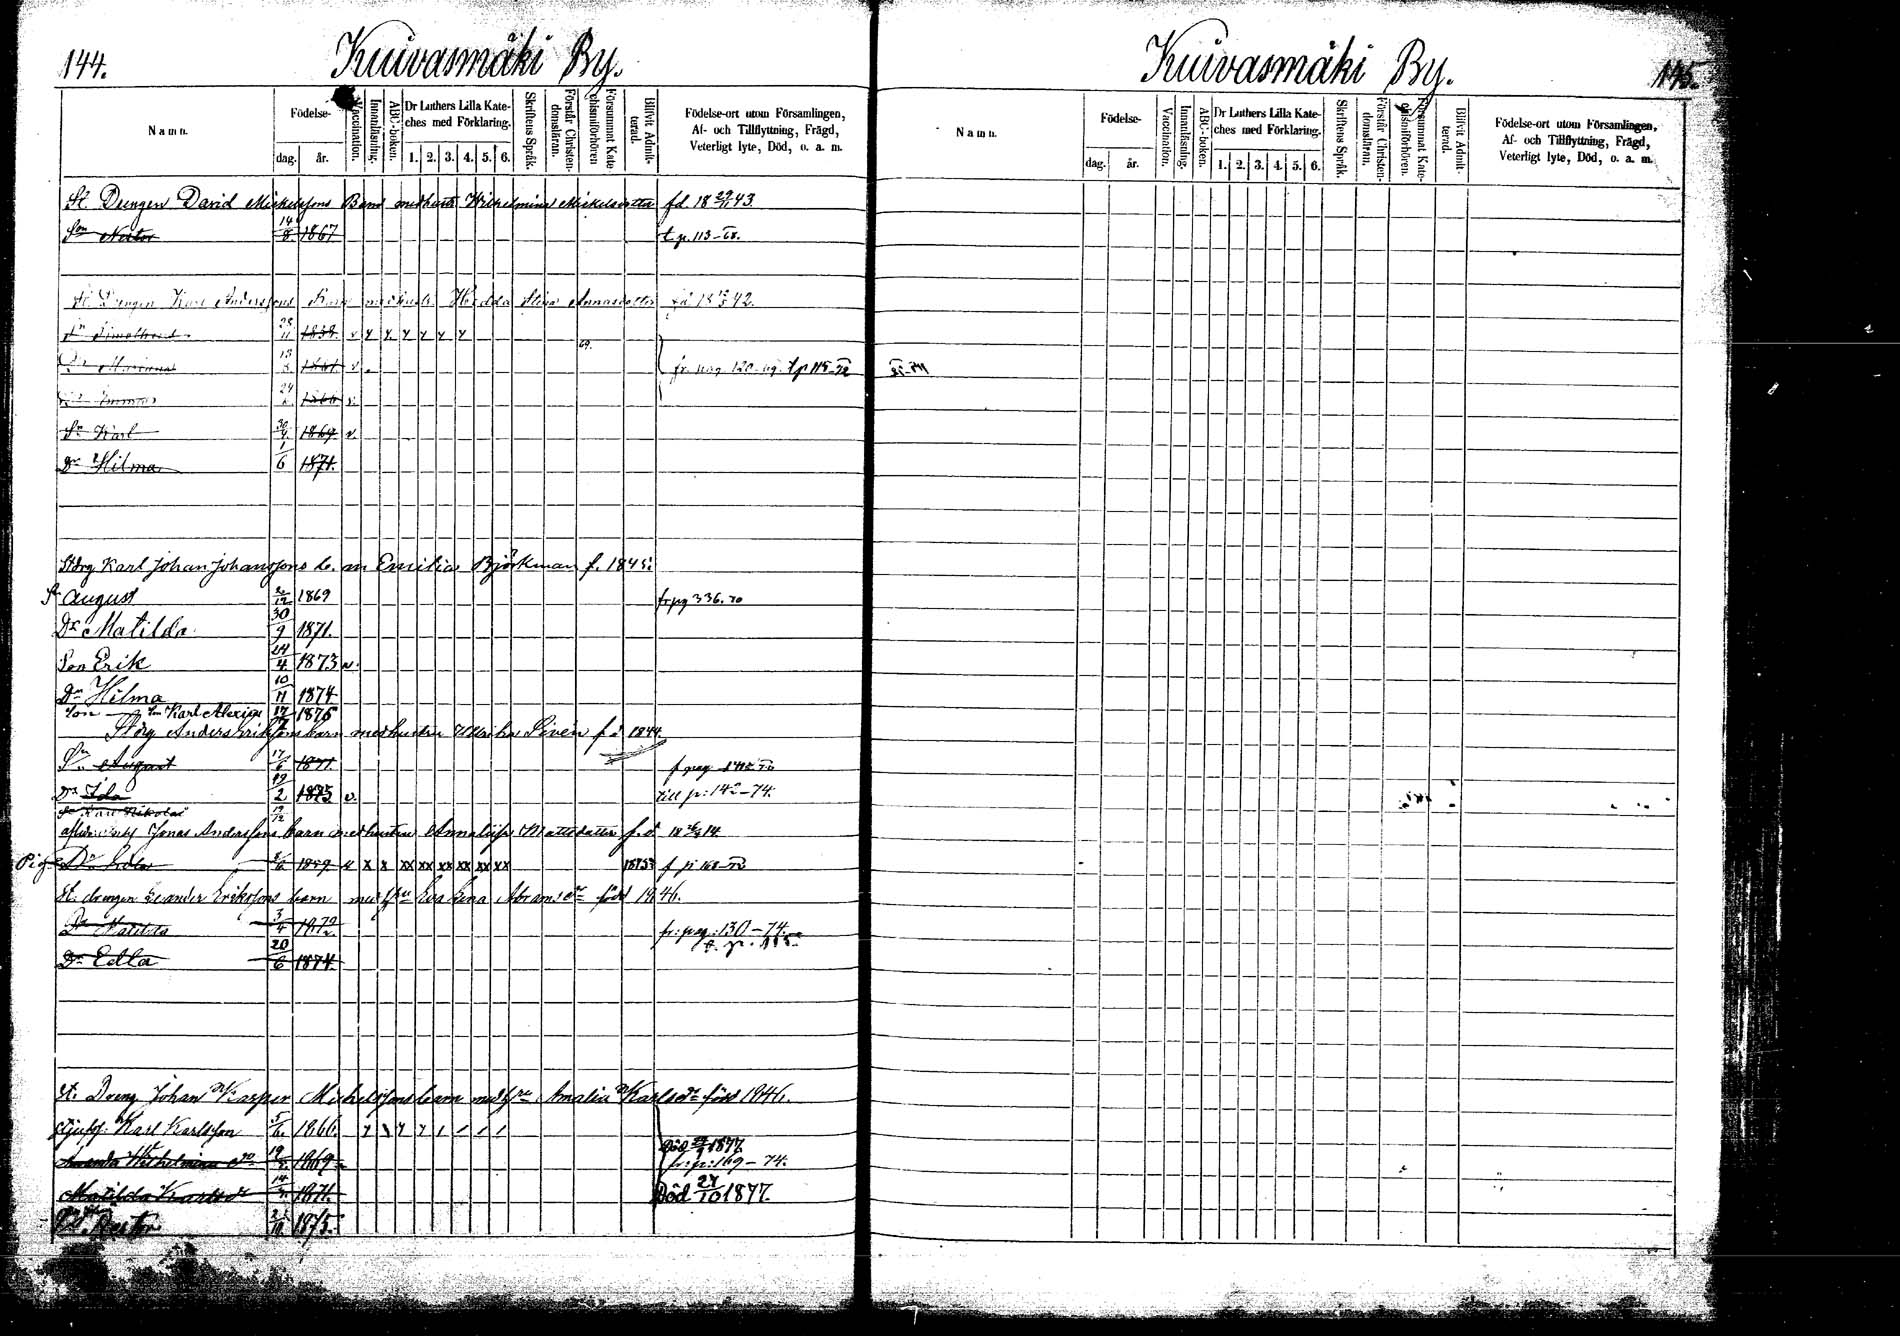 144.
Kuivasmäki By.
Namn.
Födelse-
dag.
år.
Vaccination.
Innanläsning.
ABC-boken.
Dr Luthers Lilla Kate-
ches med Förklaring.
1. 2. 3. 4. 5. 6.
Skriftens Språk.
Förstår Christen-
domsläran.
Försummat Kate
chismiförhören
Blifvit Admit-
terad.
Födelse-ort utom Församlingen,
Af- och Tillflyttning, Frägd,
Veterligt lyte, Död, o. a. m.
St. Drengen David Mickelssons Barn med hustr. Wilhelmina Mickelsdotter fd. 18 29/11 43.
Son Nestor 14/8 1867 t. p. 113-
St. Drengen Karl Anderssons Barn med hustr. Hedda Stina Annasdotter 42.
28/11 1838. v
13 v. fr. pag. 120 t p 115-72
24
Sn Karl 30/4 1869 v.
Dr Hilma 1/6 1871.
Stdrg Karl Johan Johanssons b. m Emilia Björkman f. 1845.
Sn August 2/12 1869 fr pg 336. 70
Dr Matilda 30/9 1871.
Son Erik 24/4 1873 v.
Dr Hilma 10/11 1874
Son Karl Alexius 17 1876
Stdrg Anders Erikssons barn med hustru Ulrika Sivén f. 1844.
Sn August 17/6 1871. f pag
Dr Ida 19/2 1875 v. till p: 142-74.
Sn Karl Nikolai 19/12
Jonas Anderssons barn med hustru Annalisa Mattsdotter f. d
Pig. Dr Edla 1859 x x xx xx xx xx xx xx 1875 f p 168-72
St. drengen Leander Erikssons barn med hru Eva Lena Abramsdr född 1946.
Dr Matilda 3/4 1872 fr: pag: 130-74.
t. p. 115
Dr Edla 20/6 1874
St. Dreng Johan Kasper Michelssons barn med hru Amalia Karlsdr född 1946.
Styfs: Karl Karlsson 5/6. 1866.
Amanda Wilhelmina 19 1869 Död 1877.
fr: p: 169-74.
Matilda Karlsdr 14 1871. Död 27/10 1877.
Nestor 1875.
Kuivasmäki By.
145.
Namn.
Födelse-
dag.
år.
Vaccination.
Innanläsning.
ABC-boken.
Dr Luthers Lilla Kate-
ches med Förklaring.
1. 2. 3. 4. 5. 6.
Skriftens Språk.
Förstår Christen-
domsläran.
Försummat Kate-
chismiförhören.
Blifvit Admit-
terad.
Födelse-ort utom Församlingen,
Af- och Tillflyttning, Frägd,
Veterligt lyte, Död, o. a. m.